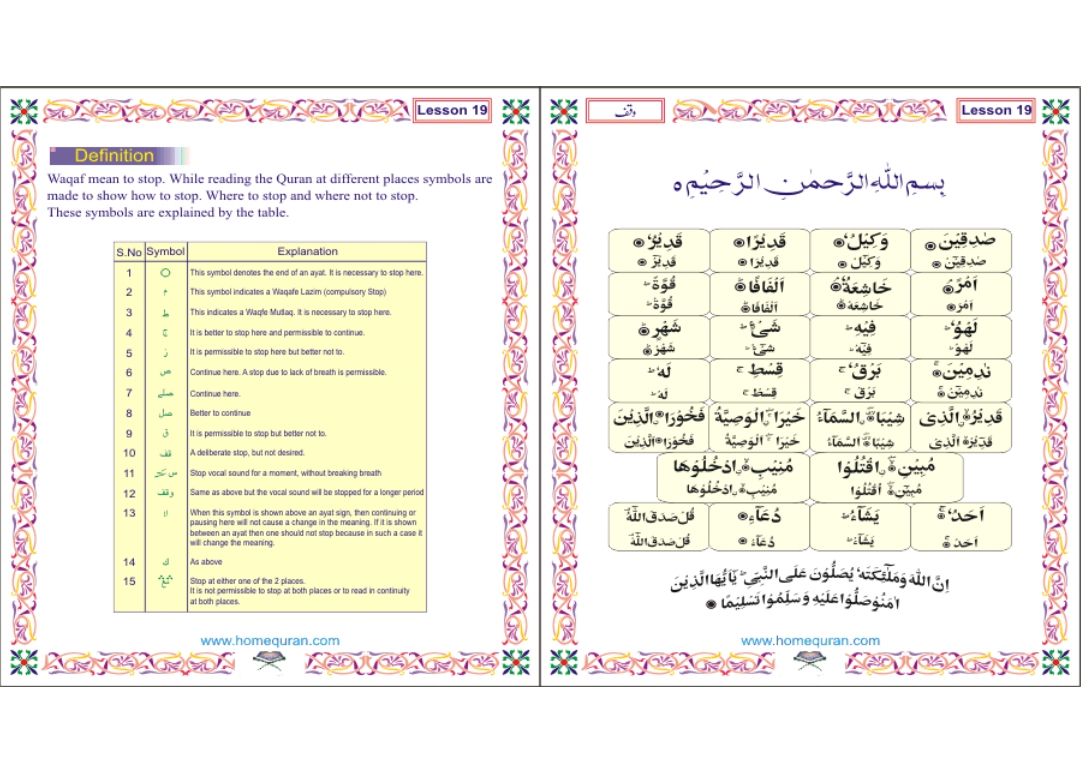 Lesson 19
Definition
Waqaf mean to stop. While reading the Quran at different places symbols are
made to show how to stop. Where to stop and where not to stop.
These symbols are explained by the table.
S.No Symbol Explanation
1 This symbol denotes the end of an ayat. It is necessary to stop here.
2 م This symbol indicates a Waqafe Lazim (compulsory Stop)
3 ط This indicates a Waqfe Mutlaq. It is necessary to stop here.
4 ج It is better to stop here and permissible to continue.
5 ز It is permissible to stop here but better not to.
6 ص Continue here. A stop due to lack of breath is permissible.
7 صلے Continue here.
8 صل Better to continue
9 ق It is permissible to stop but better not to.
10 قف A deliberate stop, but not desired.
11 س سكتہ Stop vocal sound for a moment, without breaking breath
12 وقفہ Same as above but the vocal sound will be stopped for a longer period
13 لا When this symbol is shown above an ayat sign, then continuing or
pausing here will not cause a change in the meaning. If it is shown
between an ayat then one should not stop because in such a case it
will change the meaning.
14 ك As above
15 Stop at either one of the 2 places.
It is not permissible to stop at both places or to read in continuity
at both places.
www.homequran.com
وقف
Lesson 19
بِسْمِ اللّٰهِ الرَّحْمٰنِ الرَّحِيْمِ
صٰدِقِيْنَ وَكِيْلٌ قَدِيْرًا قَدِيْرٌ
صٰدِقِيْنْ وَكِيْلْ قَدِيْرَا قَدِيْرْ
اَمْرٌ خَاشِعَةٌ اَلْفَافًا قُوَّةٍ
اَمْرْ خَاشِعَهْ اَلْفَافَا قُوَّهْ
لَهْوٌ فِيْهِ شَىْءٍ شَهْرٍ
لَهْوْ فِيْهْ شَىْءْ شَهْرْ
نٰدِمِيْنَ بَرْقٌ قِسْطٍ لَهٗ
نٰدِمِيْنْ بَرْقْ قِسْطْ لَهْ
قَدِيْرُ ۨالَّذِىْ شِيْبَا ۨالسَّمَآءُ خَيْرَا ۨالْوَصِيَّةُ فَخُوْرَا ۨالَّذِيْنَ
قَدِيْرْ الَّذِىْ شِيْبَا السَّمَآءُ خَيْرَا الْوَصِيَّةُ فَخُوْرَا الَّذِيْنَ
مُبِيْنِ ۨاقْتُلُوْا مُنِيْبِ ۨادْخُلُوْهَا
مُبِيْنْ اُقْتُلُوْا مُنِيْبْ اُدْخُلُوْهَا
اَحَدٌ يَشَآءُ دُعَآءِ قُلْ صَدَقَ اللّٰهُ
اَحَدْ يَشَآءْ دُعَآءْ قُلْ صَدَقَ اللّٰهْ
اِنَّ اللّٰهَ وَمَلٰٓئِكَتَهٗ يُصَلُّوْنَ عَلَى النَّبِىِّ ؕ يٰٓاَيُّهَا الَّذِيْنَ
اٰمَنُوْا صَلُّوْا عَلَيْهِ وَسَلِّمُوْا تَسْلِيْمًا
www.homequran.com